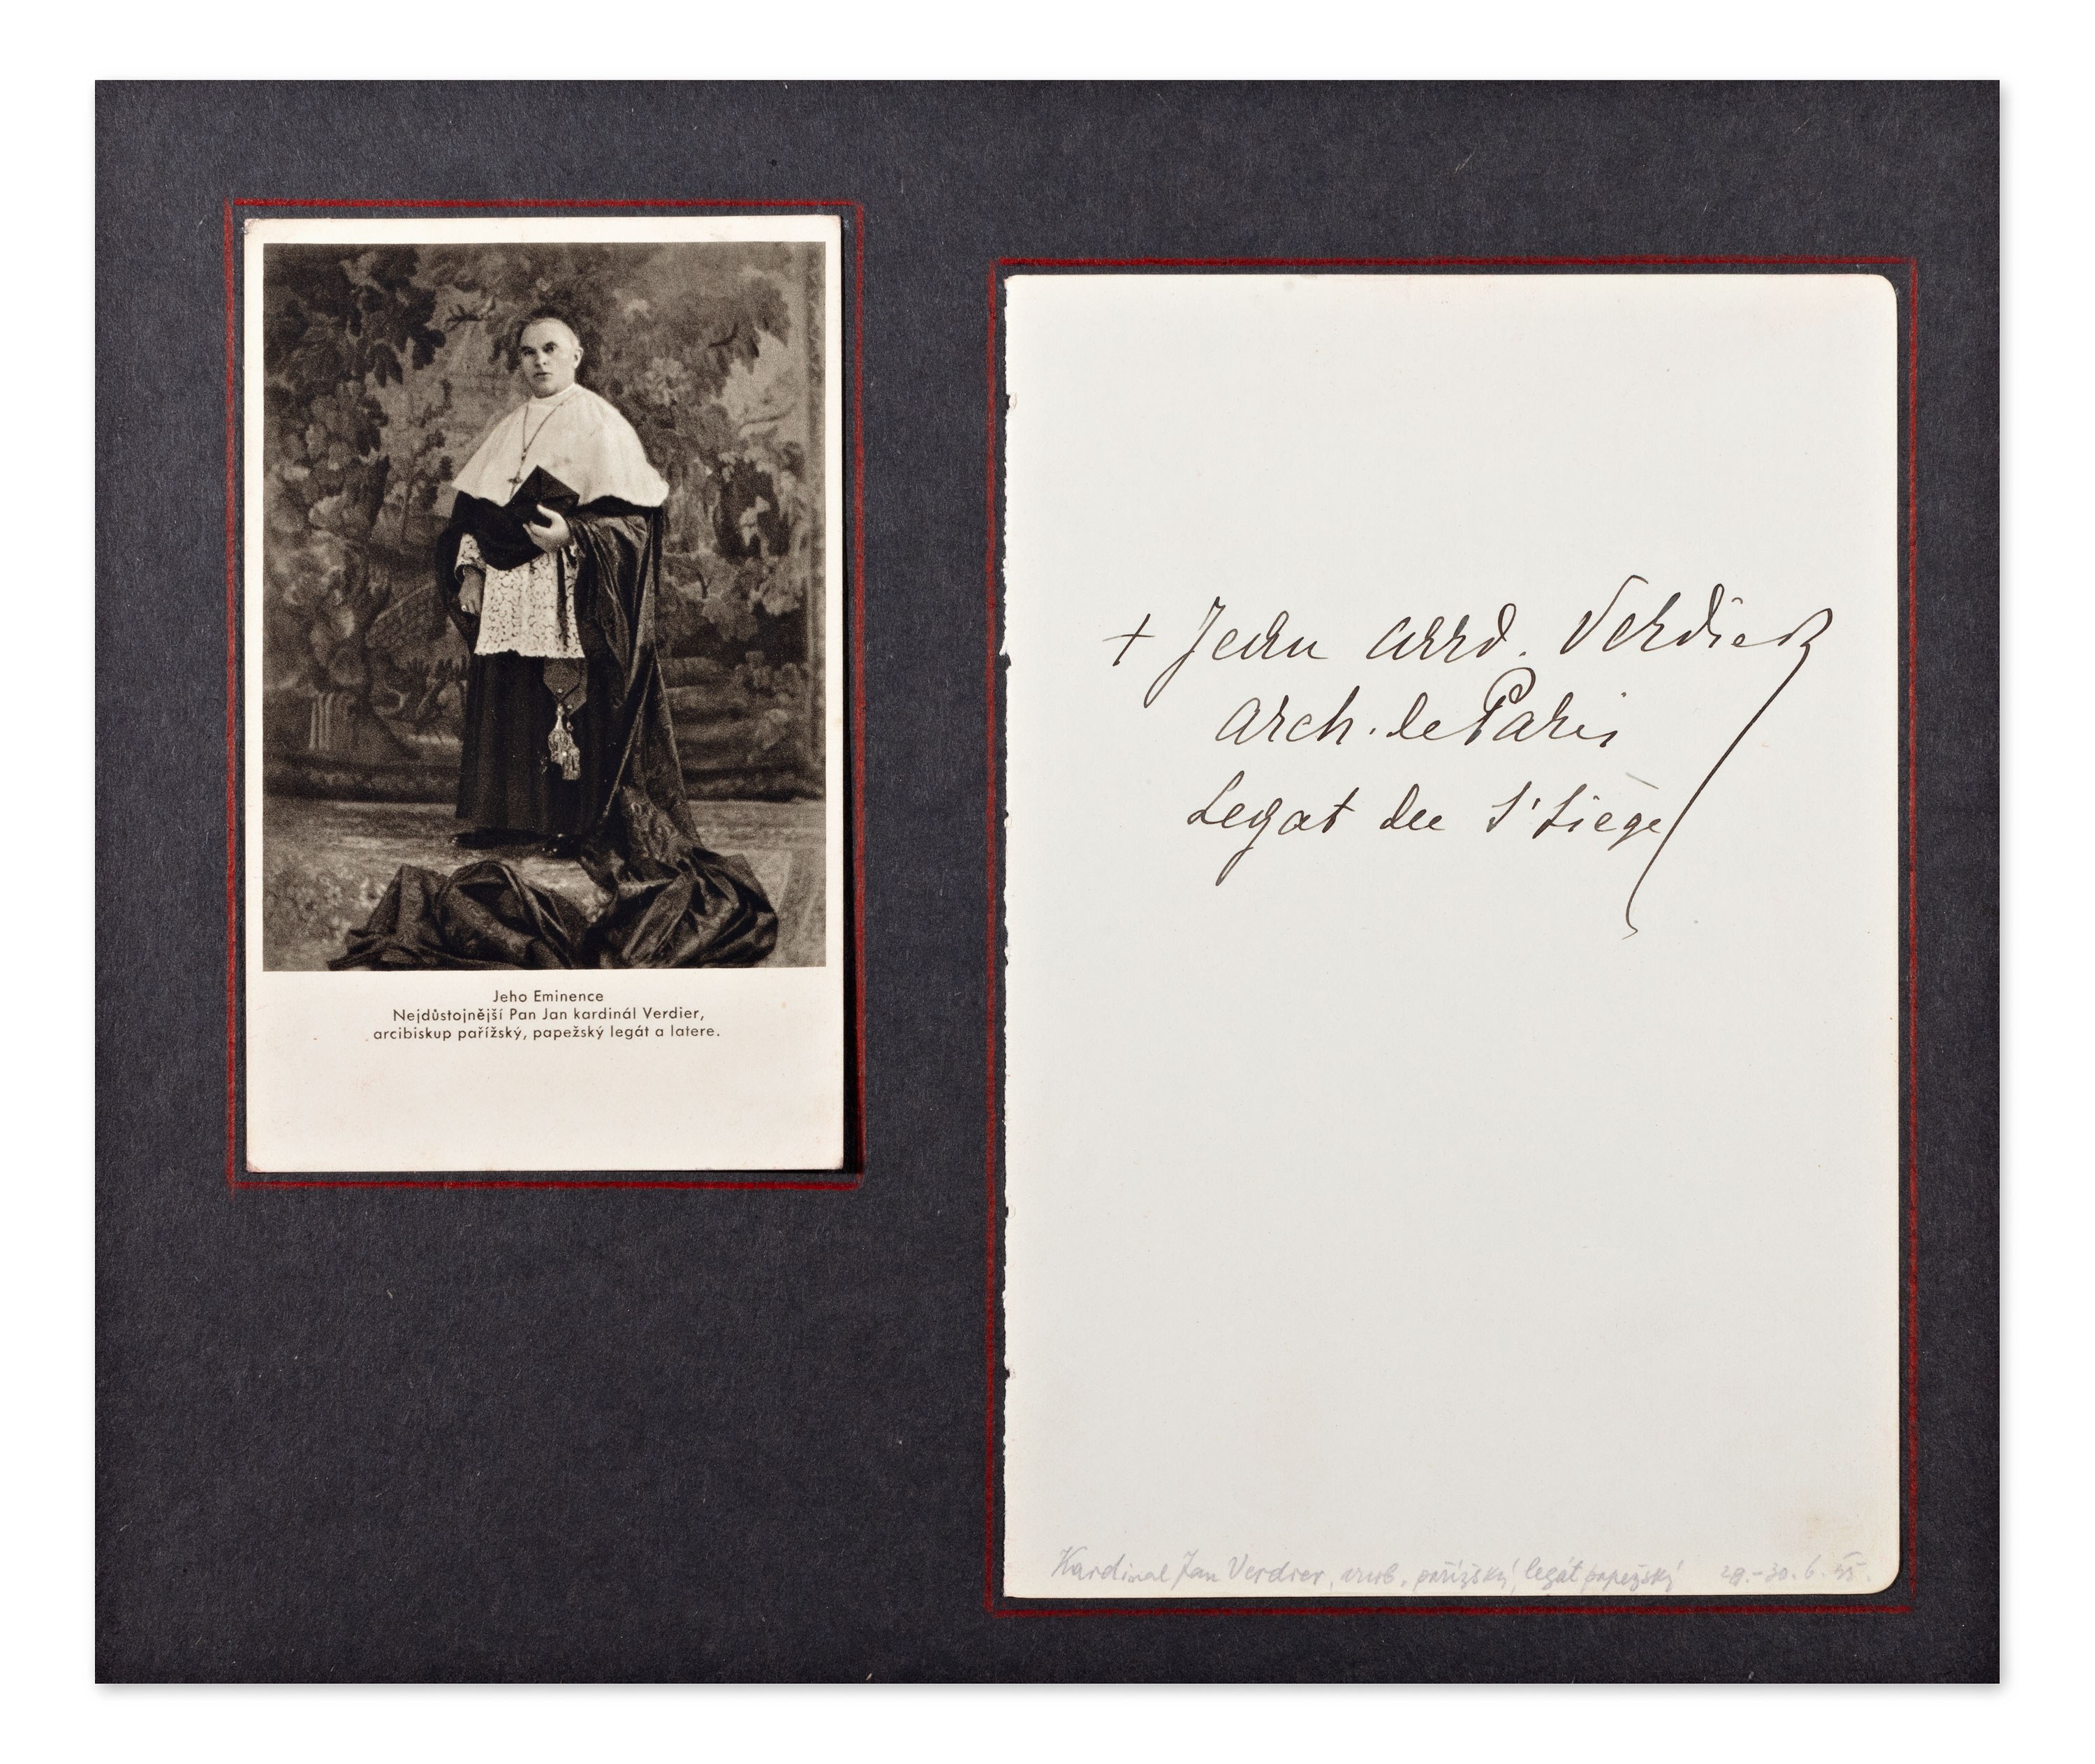 Jeho Eminence
Nejdůstojnější Pan Jan kardinál Verdier,
arcibiskup pařížský, papežský legát a latere.
+ Jean card. Verdier
arch. de Paris
Legat du St Siège
Kardinal Jan Verdier, arcib. pařížský, legát papežský 29.-30. 6. 35.